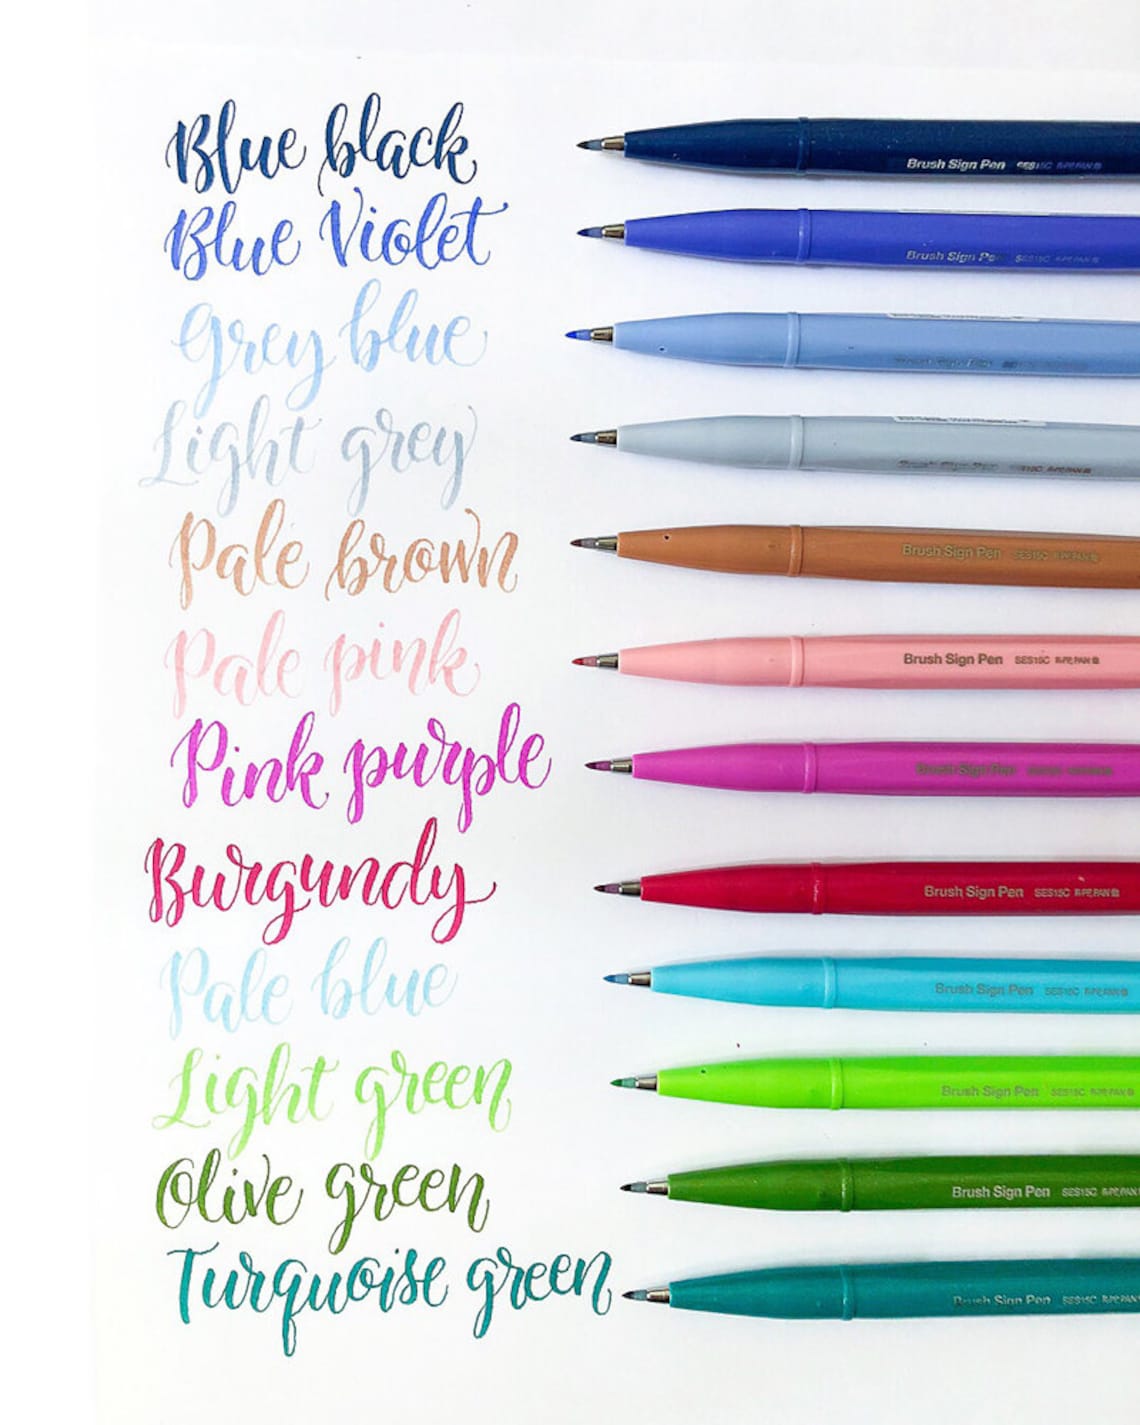 Blue black
Brush Sign Pen SES15C
Blue Violet
Brush Sign Pen SES15C
Grey blue
Brush Sign Pen
Light grey
Brush Sign Pen
Pale brown
Brush Sign Pen SES15C
Pale pink
Brush Sign Pen SES15C
Pink purple
Brush Sign Pen
Burgundy
Brush Sign Pen SES15C
Pale blue
Brush Sign Pen SES15C
Light green
Brush Sign Pen SES15C
Olive green
Brush Sign Pen SES15C
Turquoise green
Brush Sign Pen SES15C